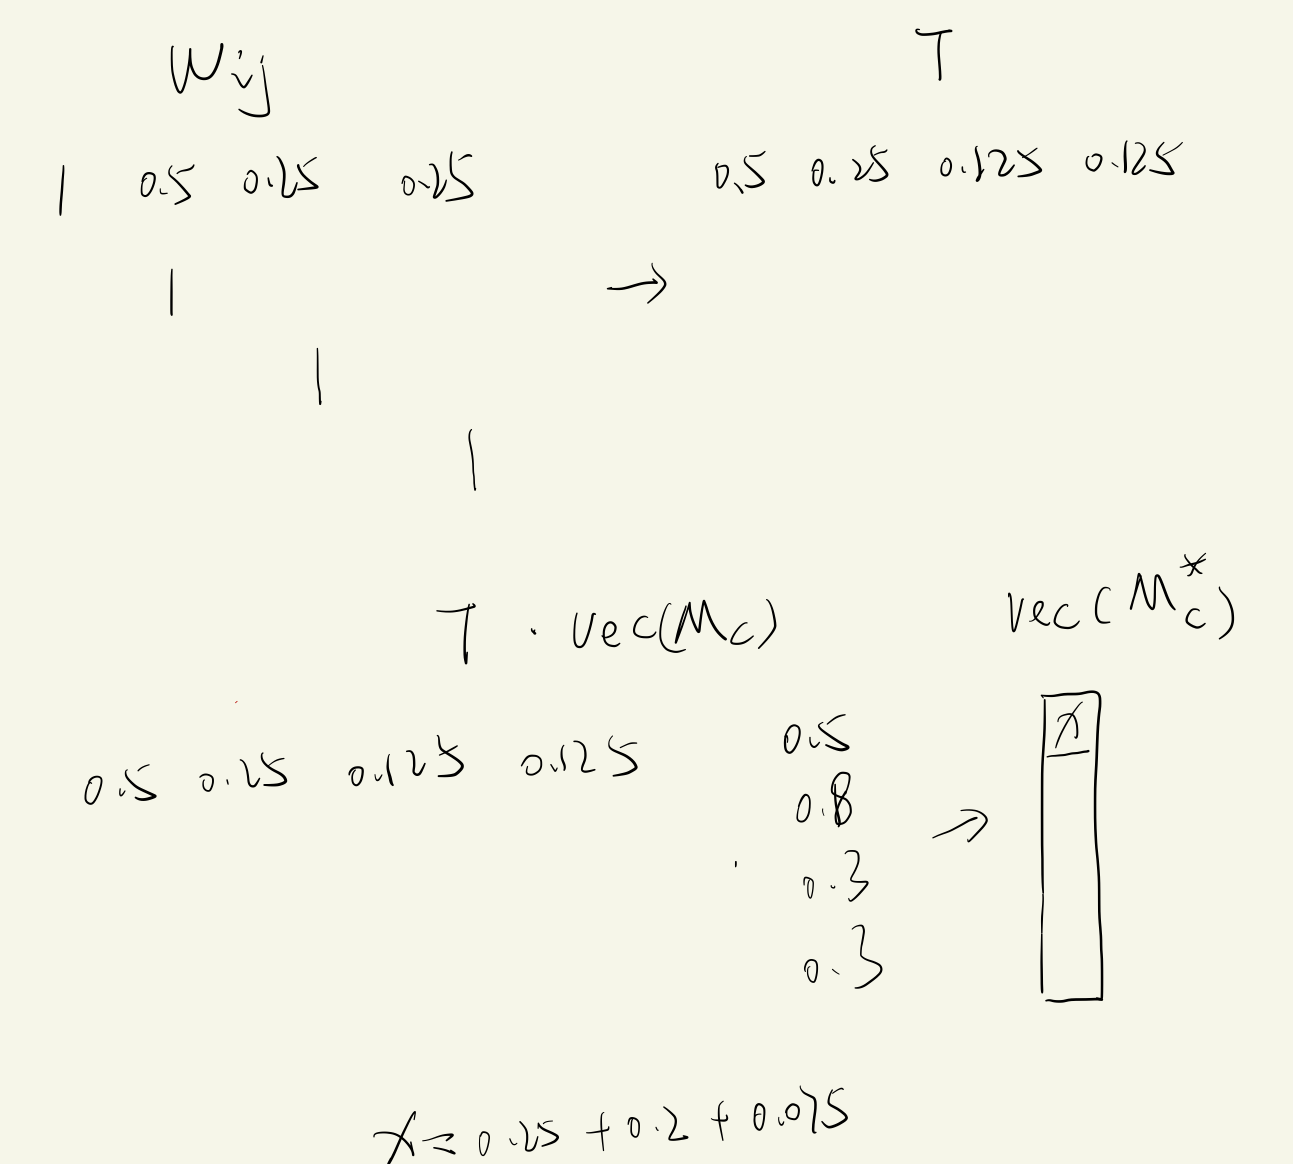 Wij T
1 0.5 0.25 0.25 0.5 0.25 0.125 0.125
1 →
1
1
T · vec(Mc) vec(Mc*)
0.5 0.25 0.125 0.125 0.5 x
0.8 →
0.3
0.3
x = 0.25 + 0.2 + 0.075